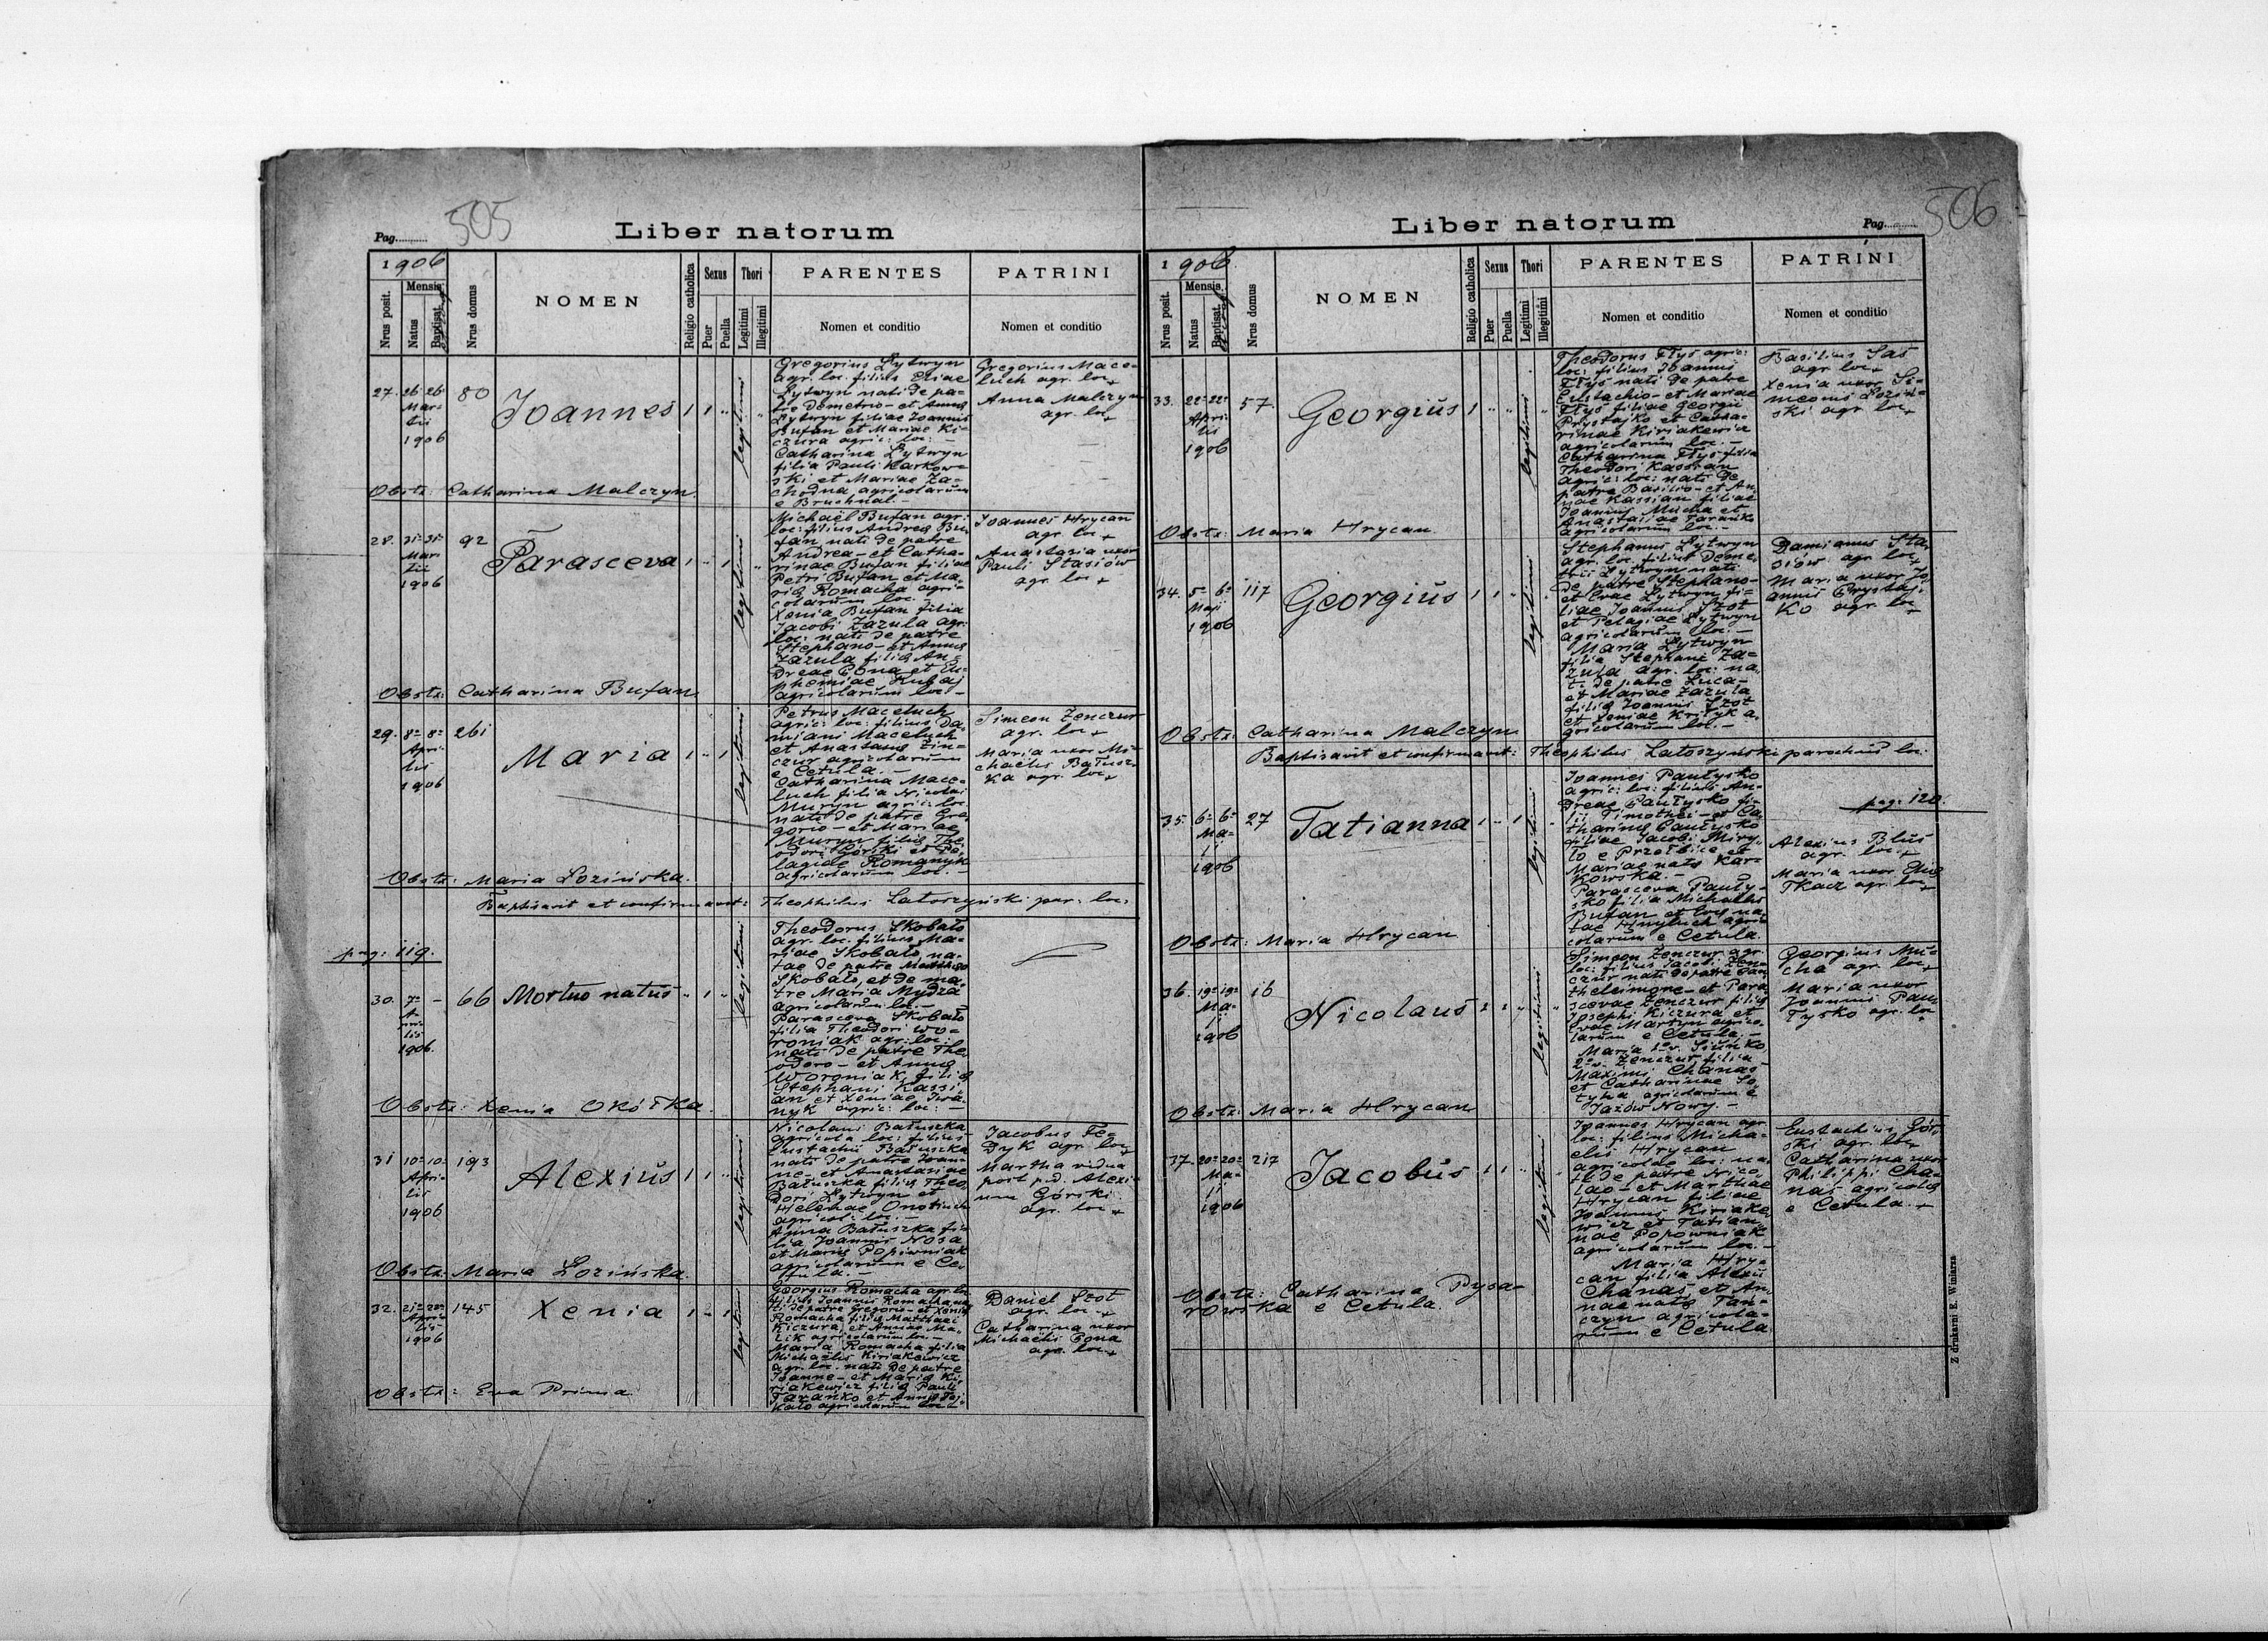 505
Pag.
Liber natorum
1906
Nrus posit.
Mensis
Natus
Baptisat.
Nrus domus
NOMEN
Religio catholica
Sexus
Puer
Puella
Thori
Legitimi
Illegitimi
PARENTES
Nomen et conditio
PATRINI
Nomen et conditio
27. 26. 26.
Mar-
tii
1906
80
Joannes
1 1 "
legitimi
Gregorius Lytwyn
agr. loc. filius Eliae
Lytwyn nati de pa-
tre Demetrio - et Anna
Lytwyn filiae Joannis
Bufan et Mariae Ki-
czura agric: loc: -
Catharina Lytwyn
filia Pauli Karkow-
ski et Mariae Za-
chodna agricolarum
e Bruchnal. -
Gregorius Mace-
luch agr. loc +
Anna Malczyn
agr. loc +
Obstr: Catharina Malczyn.
28. 31. 31.
Mar-
tii
1906
92
Parasceva
1 " 1
legitimi
Michaël Bufan agr.
loc: filius Andreae Bu-
fan nati de patre
Andrea - et Catha-
rinae Bufan filiae
Petri Bufan et Ma-
riae Romacha agri-
colarum loc. -
Xenia Bufan filia
Jacobi Zazula agr:
loc: nati de patre
Stephano - et Anna
Zazula filiae An-
dreae Pona et Eu-
phemiae Kubaj
agricolarum loc -
Joannes Hrycan
agr. loc +
Anastasia uxor
Pauli Stasiów
agr. loc +
Obstr: Catharina Bufan
29. 8. 8.
Apri-
lis
1906
261
Maria
1 " 1
legitimi
Petrus Maceluch
agric: loc: filius Da-
miani Maceluch
et Anastasiae Zin-
czur agricolarum
e Cetula. -
Catharina Mace-
luch filia Nicolai
Muryn agric: loc.
nati de patre Gre-
gorio - et Mariae
Muryn filiae The-
odori Górski et Pe-
lagiae Romanyk
agricolarum loc. -
Simeon Zenczur
agr. loc +
Maria uxor Mi-
chaëlis Batusz-
ka agr. loc +
Obstr: Maria Lozińska.
Baptisavit et confirmavit: Theophilus Latoszyński par: loc:
pag: 119.
30. 7. -
A-
pri-
lis
1906.
66
Mortuo natus
" 1 "
legitimi
Theodorus Skobało
agr. loc. filius Ma-
riae Skobało na-
tae de patre Matthaeo
Skobało, et de ma-
tre Maria Mydza
agricolarum loc -
Parasceva Skobało
filia Theodori Wo-
roniak agr: loc:
nati de patre The-
odoro - et Anna
Woroniak filiae
Stephani Kassi-
an et Xeniae Iwa-
nyk agric: loc: -
Obstr: Xenia Okółka.
31 10. 10.
Apri-
lis
1906
193
Alexius
1 1 "
legitimi
Nicolaus Batuszka
agricola loc: filius
Eustachii Batuszka
nati de patre Joan-
ne - et Anastasiae
Batuszka filiae Theo-
dori Lytwyn et
Helenae Onotiuch
agricol: loc. -
Anna Batuszka fi-
lia Joannis Nosa
et Mariae Popiwniak
agricolarum e Ce-
tula. -
Jacobus Fe-
dyk agr. loc +
Martha vidua
post p.d. Alexi-
um Górski
agr. loc +
Obstr: Maria Lozińska.
32. 21. 22.
Apri-
lis
1906
145
Xenia
1 - 1
legitimi
Georgius Romacha agr. loc
filius Joannis Romacha na-
ti de patre Gregorio - et Xeniae
Romacha filiae Matthaei
Kiczura et Annae Ma-
lik agricolarum loc. -
Maria Romacha filia
Michaëlis Kiriakewicz
agr. loc. nati de patre
Joanne - et Mariae Ki-
riakewicz filiae Pauli
Tarańko et Annae
agricolarum loc -
Daniel Szot
agr. loc. +
Catharina uxor
Michaëlis Pona
agr. loc +
Obstr: Eva Prima
506
Liber natorum
Pag.
1906.
Nrus posit.
Mensis
Natus
Baptisat.
Nrus domus
NOMEN
Religio catholica
Sexus
Puer
Puella
Thori
Legitimi
Illegitimi
PARENTES
Nomen et conditio
PATRINI
Nomen et conditio
33. 22. 22.
Apri-
lis
1906
57.
Georgius
1 " "
legitimi
Theodorus Flys agric:
loc: filius Joannis
Flys nati de patre
Eustachio - et Mariae
Flys filiae Georgii
Prystajko et Catha-
rinae Kiriakewicz
agricolarum loc. -
Catharina Flys filia
Theodori Kassian
agric: loc: nati de
patre Basilio - et An-
nae Kassian filiae
Joannis Mucha et
Anastasiae Tarańko
agricolarum loc. -
Basilius Sas
agr. loc +
Xenia uxor Si-
meonis Loziń-
ski agr. loc +
Obstr: Maria Hrycan.
34. 5. 6.
Maji
1906
117
Georgius
1 1 "
legitimi
Stephanus Lytwyn
agr. loc. filius Deme-
trii Lytwyn nati
de patre Stephano -
et Evae Lytwyn fi-
liae Joannis Szot
et Pelagiae Lytwyn
agricolarum loc. -
Maria Lytwyn
filia Stephani Za-
zula agr. loc: na-
ti de patre Luca -
et Mariae Zazula
filiae Joannis Szot
et Xeniae Krityk a-
gricolarum loc. -
Damianus Sta-
siów agr. loc +
Maria uxor Jo-
annis Prystaj-
ko agr. loc +
Obstr: Catharina Malczyn.
Baptisavit et confirmavit: Theophilus Latoszyński parochus loc:
pag: 120.
35. 6. 6.
Ma-
ji
1906
27
Tatianna
1 - 1
legitimi
Joannes Pautysko
agric: loc: filius An-
dreae Pautysko fi-
lii Timothei - et Ca-
tharinae Pautysko
filiae Jacobi Miry-
to e Przołbice et
Mariae nata Kar-
kowska. -
Parasceva Pauty-
sko filia Michaëlis
Bufan et Evae na-
tae Hnyluch agri-
colarum e Cetula.
Alexius Blus
agr. loc. +
Maria uxor Eliae
Tkacz agr. loc +
Obstr: Maria Hrycan
36. 19. 19.
Ma-
ji
1906
16
Nicolaus
1 1 "
legitimi
Simeon Zenczur agr.
loc: filius Jacobi Zen-
czur nati de patre Pan-
theleimone - et Para-
scevae Zenczur filiae
Josephi Kiczura et
Evae Martyn agrico-
larum e Cetula. -
Maria 1o v. Siuńko
2o v. Zenczur filia
Maximi Chanas
et Catharinae So-
tyha agricolarum e
Jazów Nowy. -
Georgius Mu-
cha agr. loc +
Maria uxor
Joannis Pau-
tysko agr. loc +
Obstr: Maria Hrycan
37. 20. 20.
Ma-
ji
1906
217
Jacobus
1 1 "
legitimi
Joannes Hrycan agr.
loc: filius Micha-
ëlis Hrycan
agricolae loc: na-
ti de patre Nico-
lao - et Marthae
Hrycan filiae
Joannis Kiriake-
wicz et Tatian-
nae Popowniak
agricolarum loc. -
Maria Hry-
can filia Alexii
Chanas et An-
nae nata Pan-
czyn agricola-
rum e Cetula
Eustachius Gór-
ski agr. loc +
Catharina uxor
Philippi Cha-
nas agricolae
e Cetula. +
Obstr: Catharina Pysa-
rowska e Cetula.
Z drukarni E. Winiarza